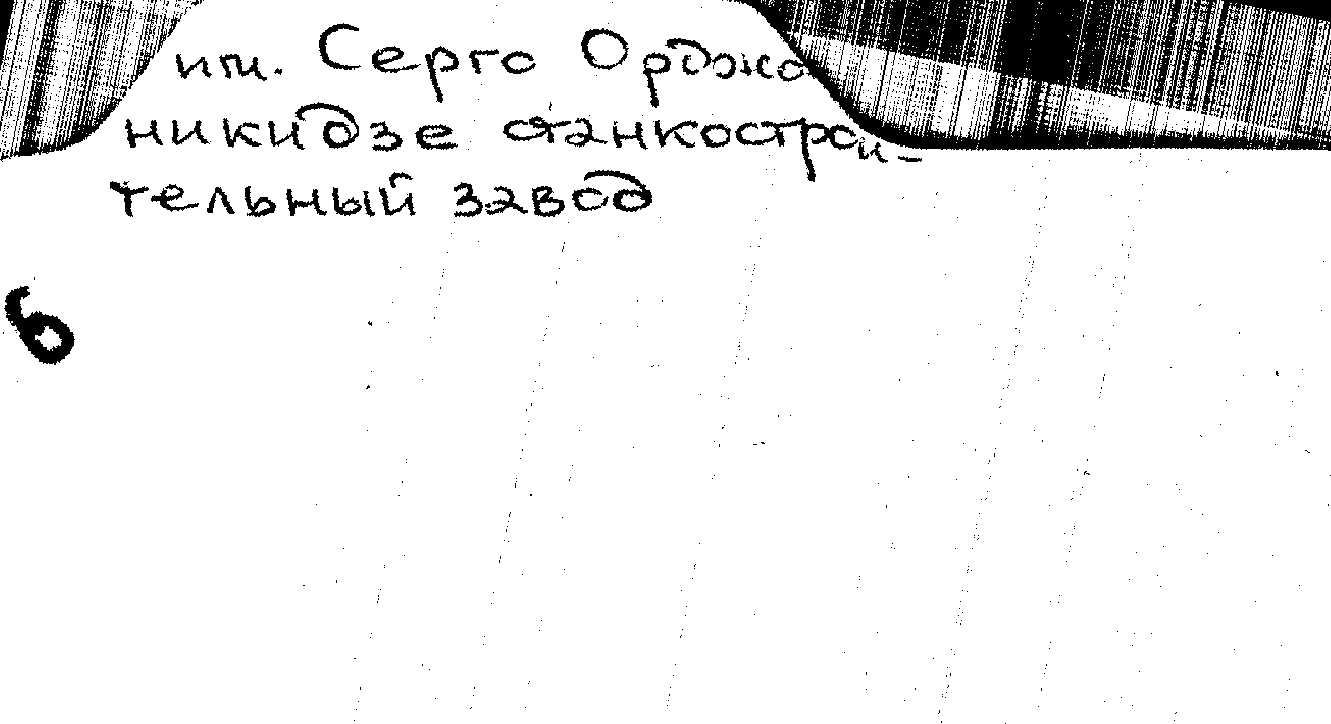 им. Серго Орджо
никидзе станкострои-
тельный завод
6